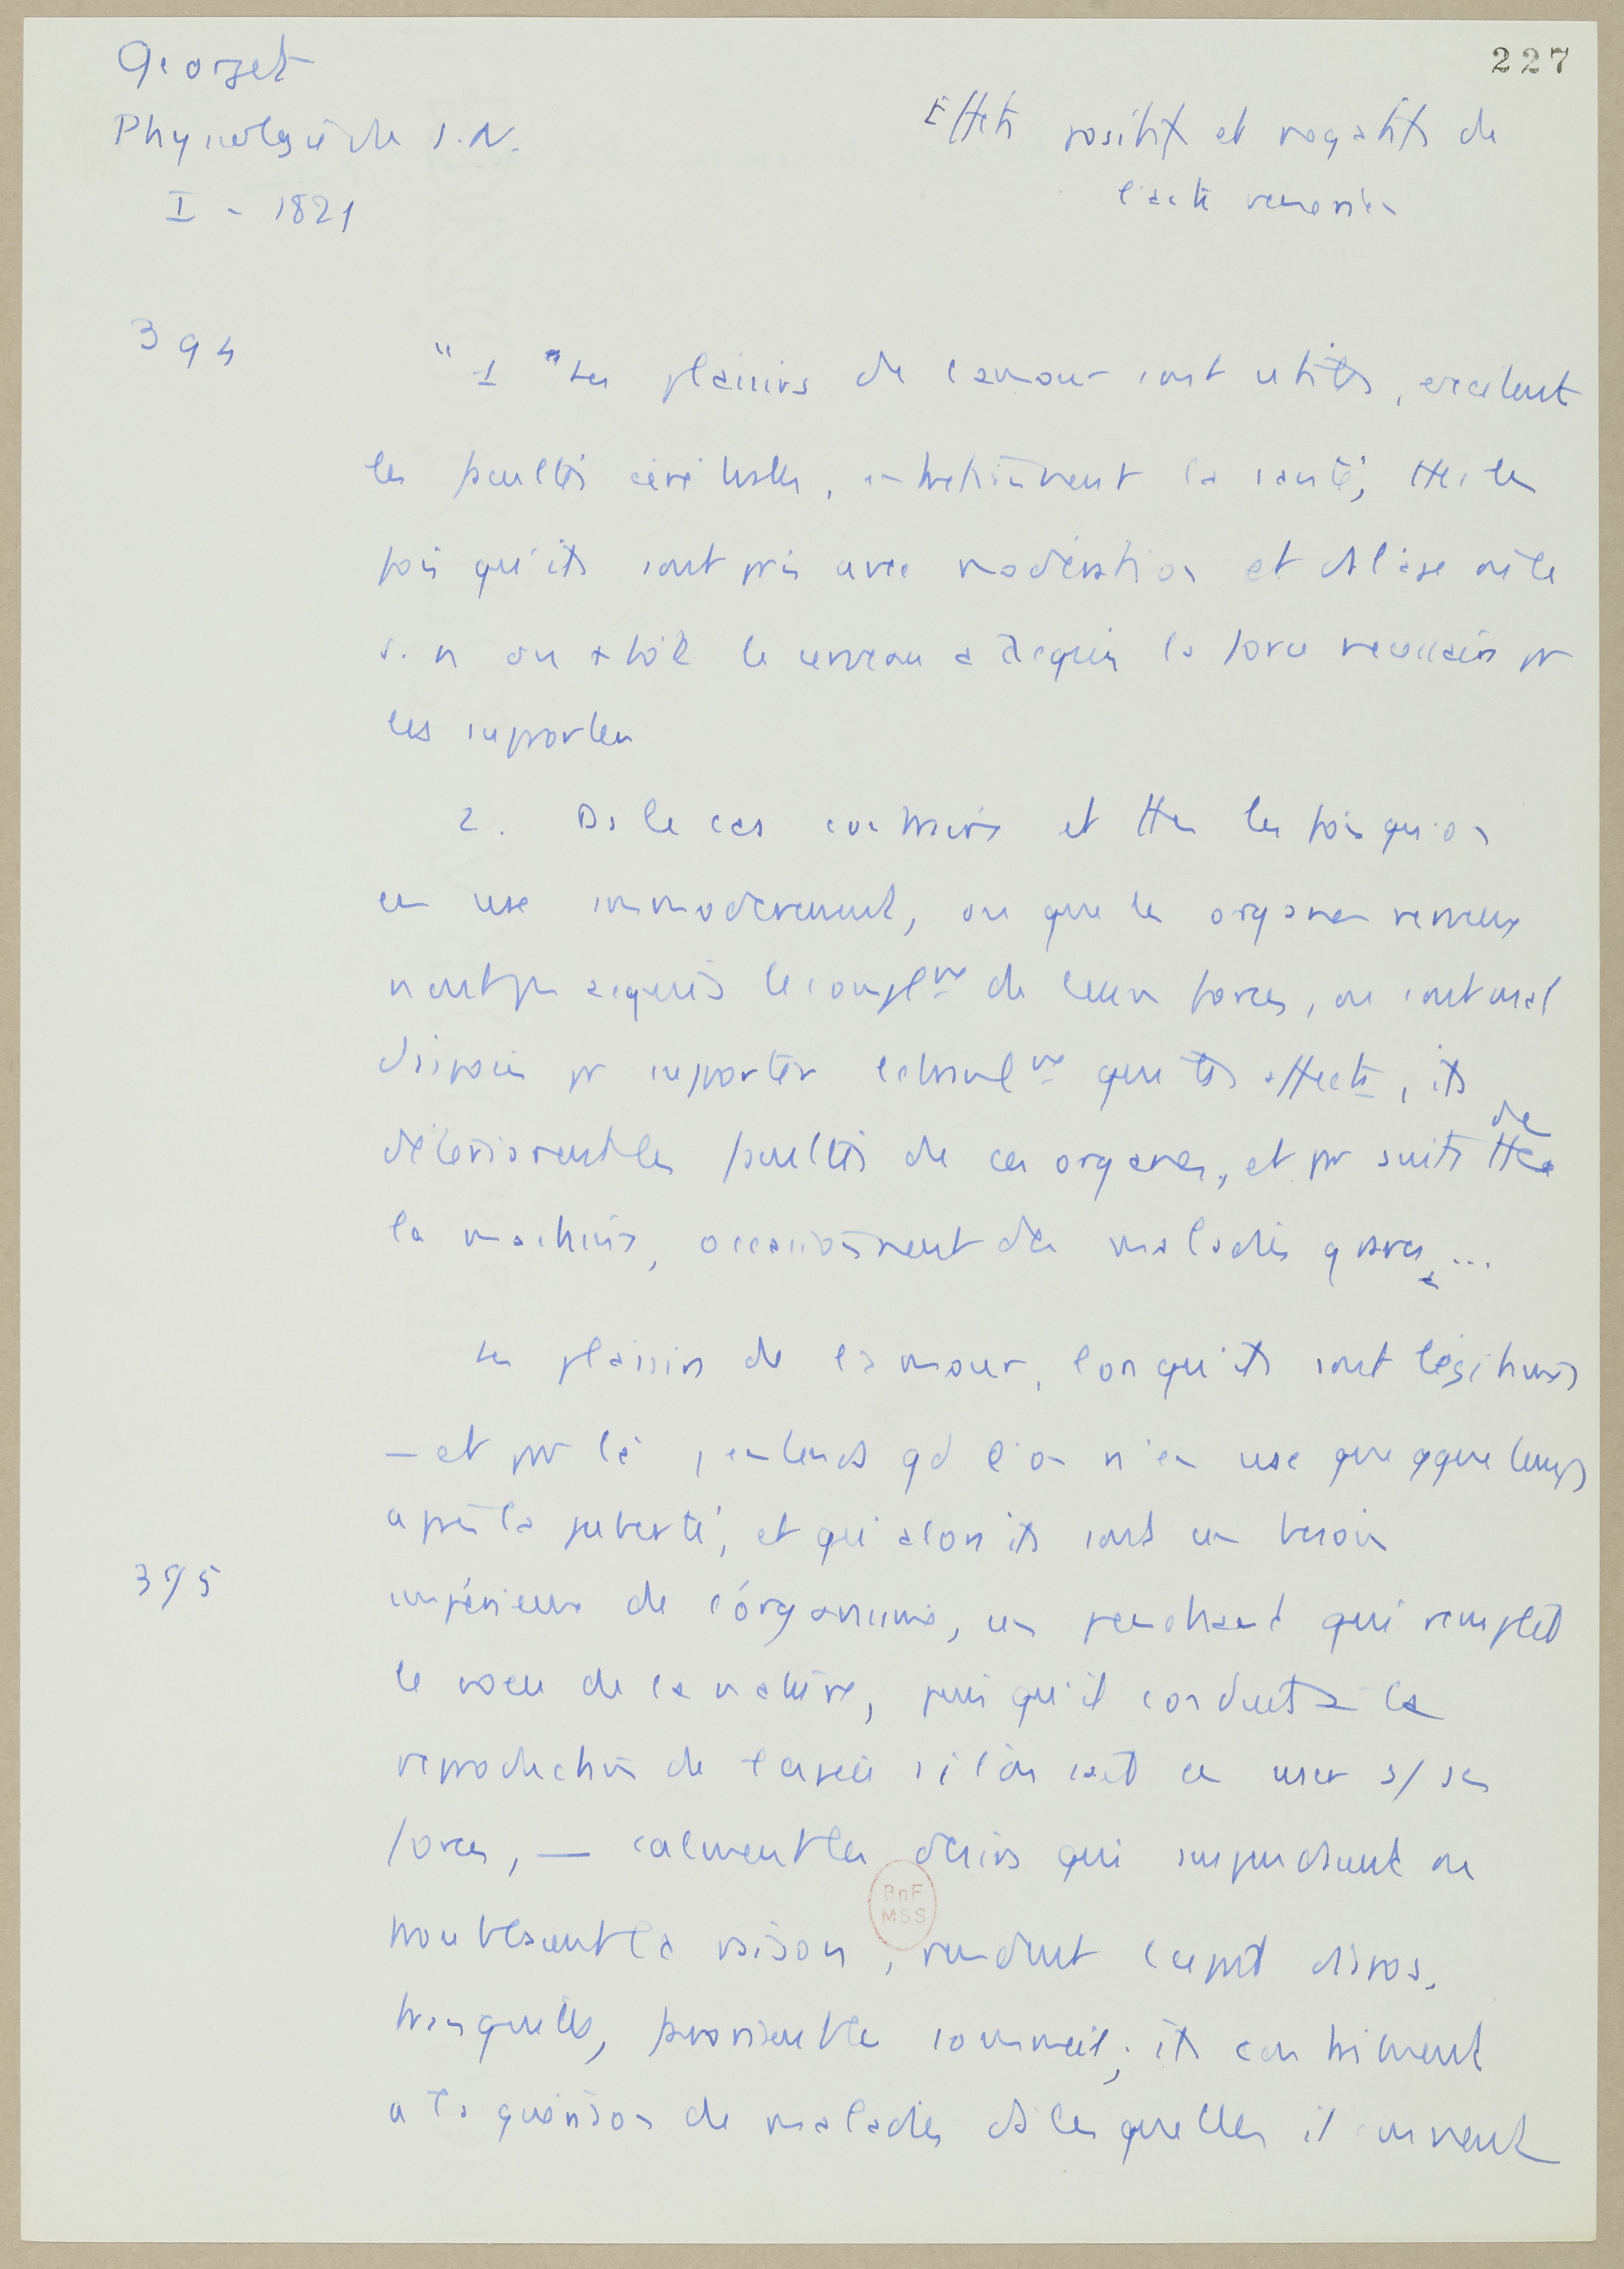 Georget
227
Physiologie du S.N.
I - 1821
Effets positifs et négatifs de
l'acte vénérien
394
"1 "Les plaisirs de l'amour sont utiles, excitent
les facultés cérébrales, entretiennent la santé, ttes les
fois qu'ils sont pris avec modération et ds l'âge où le
s. n ou plutôt le cerveau a acquis la force nécessaire pr
les supporter
2. Ds le cas contraire et ttes les fois qu'on
en use immodérément, ou que les organes nerveux
n'ont pas acquis le complmt de leurs forces, ou sont mal
disposés pr supporter l'ébranlmt qui les affecte, ils
détériorent les facultés de ces organes, et par suite de tte
la machine, occasionnent des maladies graves...
Les plaisirs de l'amour, lorsqu'ils sont légitimes
— et par là j'entends qd l'on n'en use que qque temps
après la puberté, et qu'alors ils sont un besoin
395
impérieux de l'organisme, un penchant qui remplit
le voeu de la nature, puisqu'il conduit à la
reproduction de l'espèce si l'on sait en user s/ ses
forces, — calment les désirs qui suspendent ou
troublaient la raison, rendent l'esprit dispos,
tranquille, favorisent le sommeil; ils contribuent
à la guérison de maladies ds lesquelles il convient
BnF
MSS